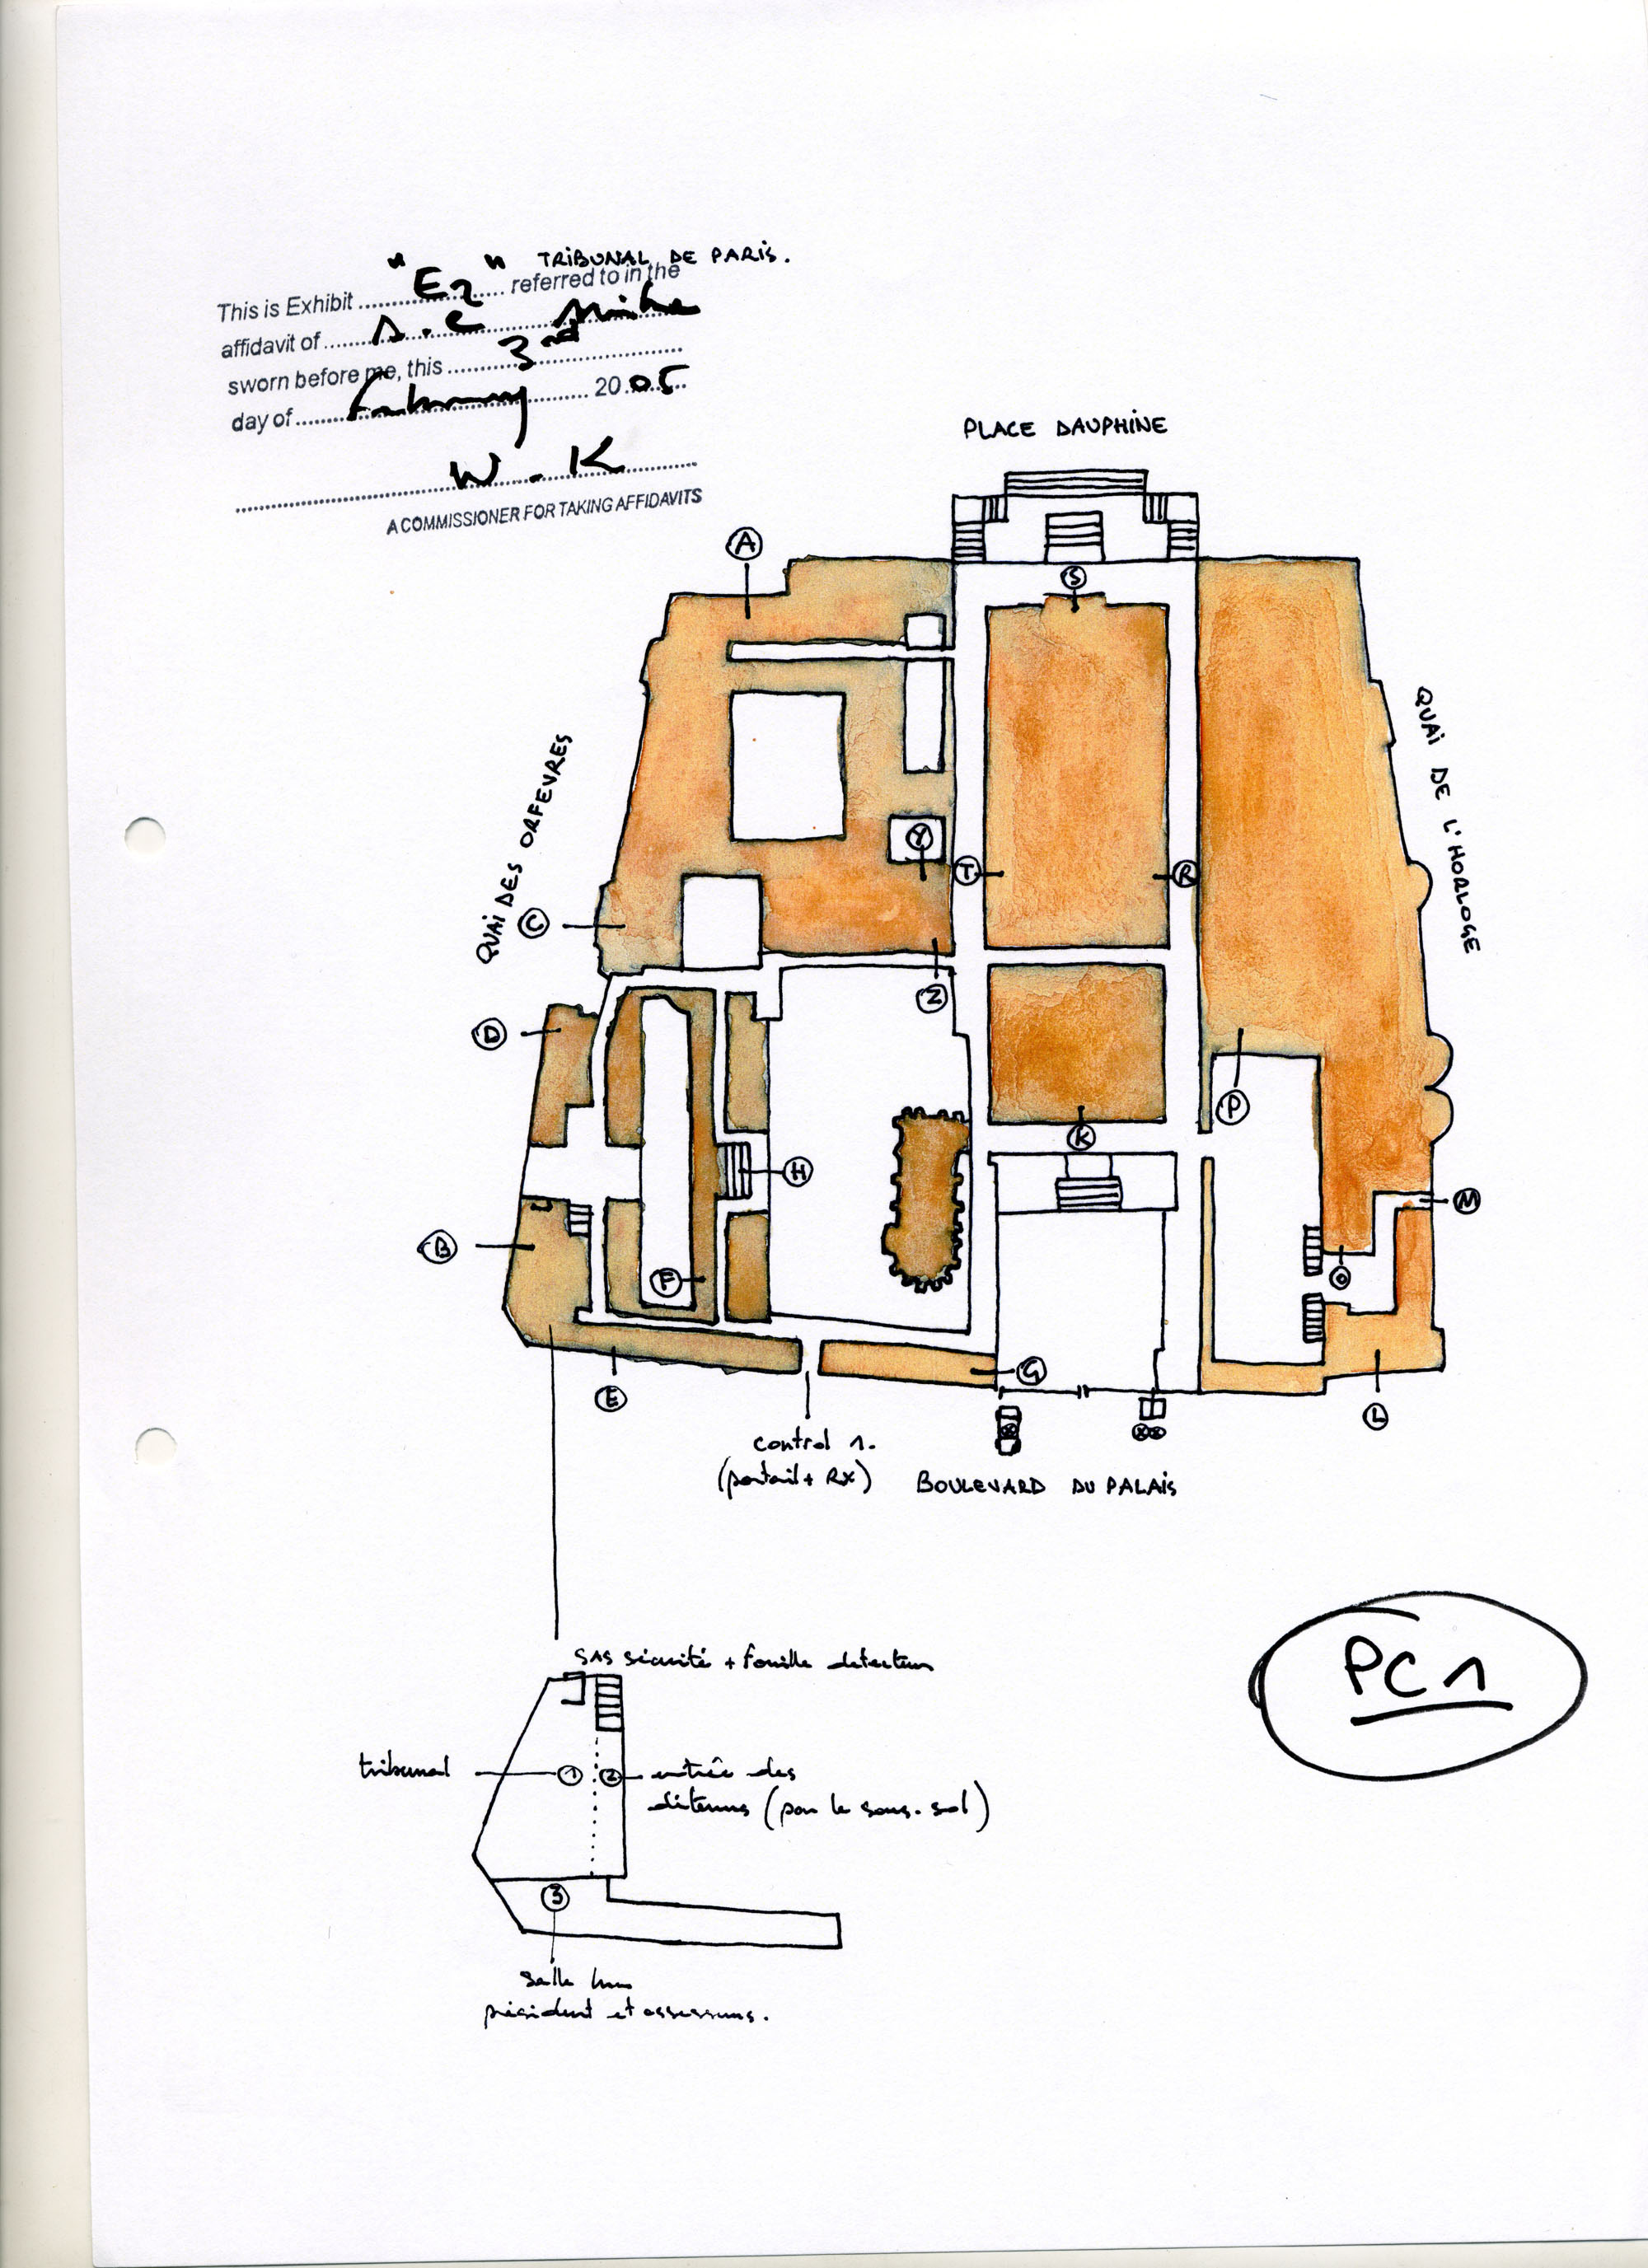 TRIBUNAL DE PARIS.
This is Exhibit "E2" referred to in the
affidavit of A.C
sworn before me, this 3rd
day of February 2005
W.K
A COMMISSIONER FOR TAKING AFFIDAVITS
PLACE DAUPHINE
A
S
QUAI DES ORFEVRES
QUAI DE L'HORLOGE
Y
T
R
C
Z
D
P
K
H
M
B
F
O
E
G
L
control 1.
(portail + RX)
BOULEVARD DU PALAIS
PC1
SAS sécurité + fouille detecteur
tribunal
1
2
entrée des
détenus (par le sous-sol)
3
salle
président et assesseurs.